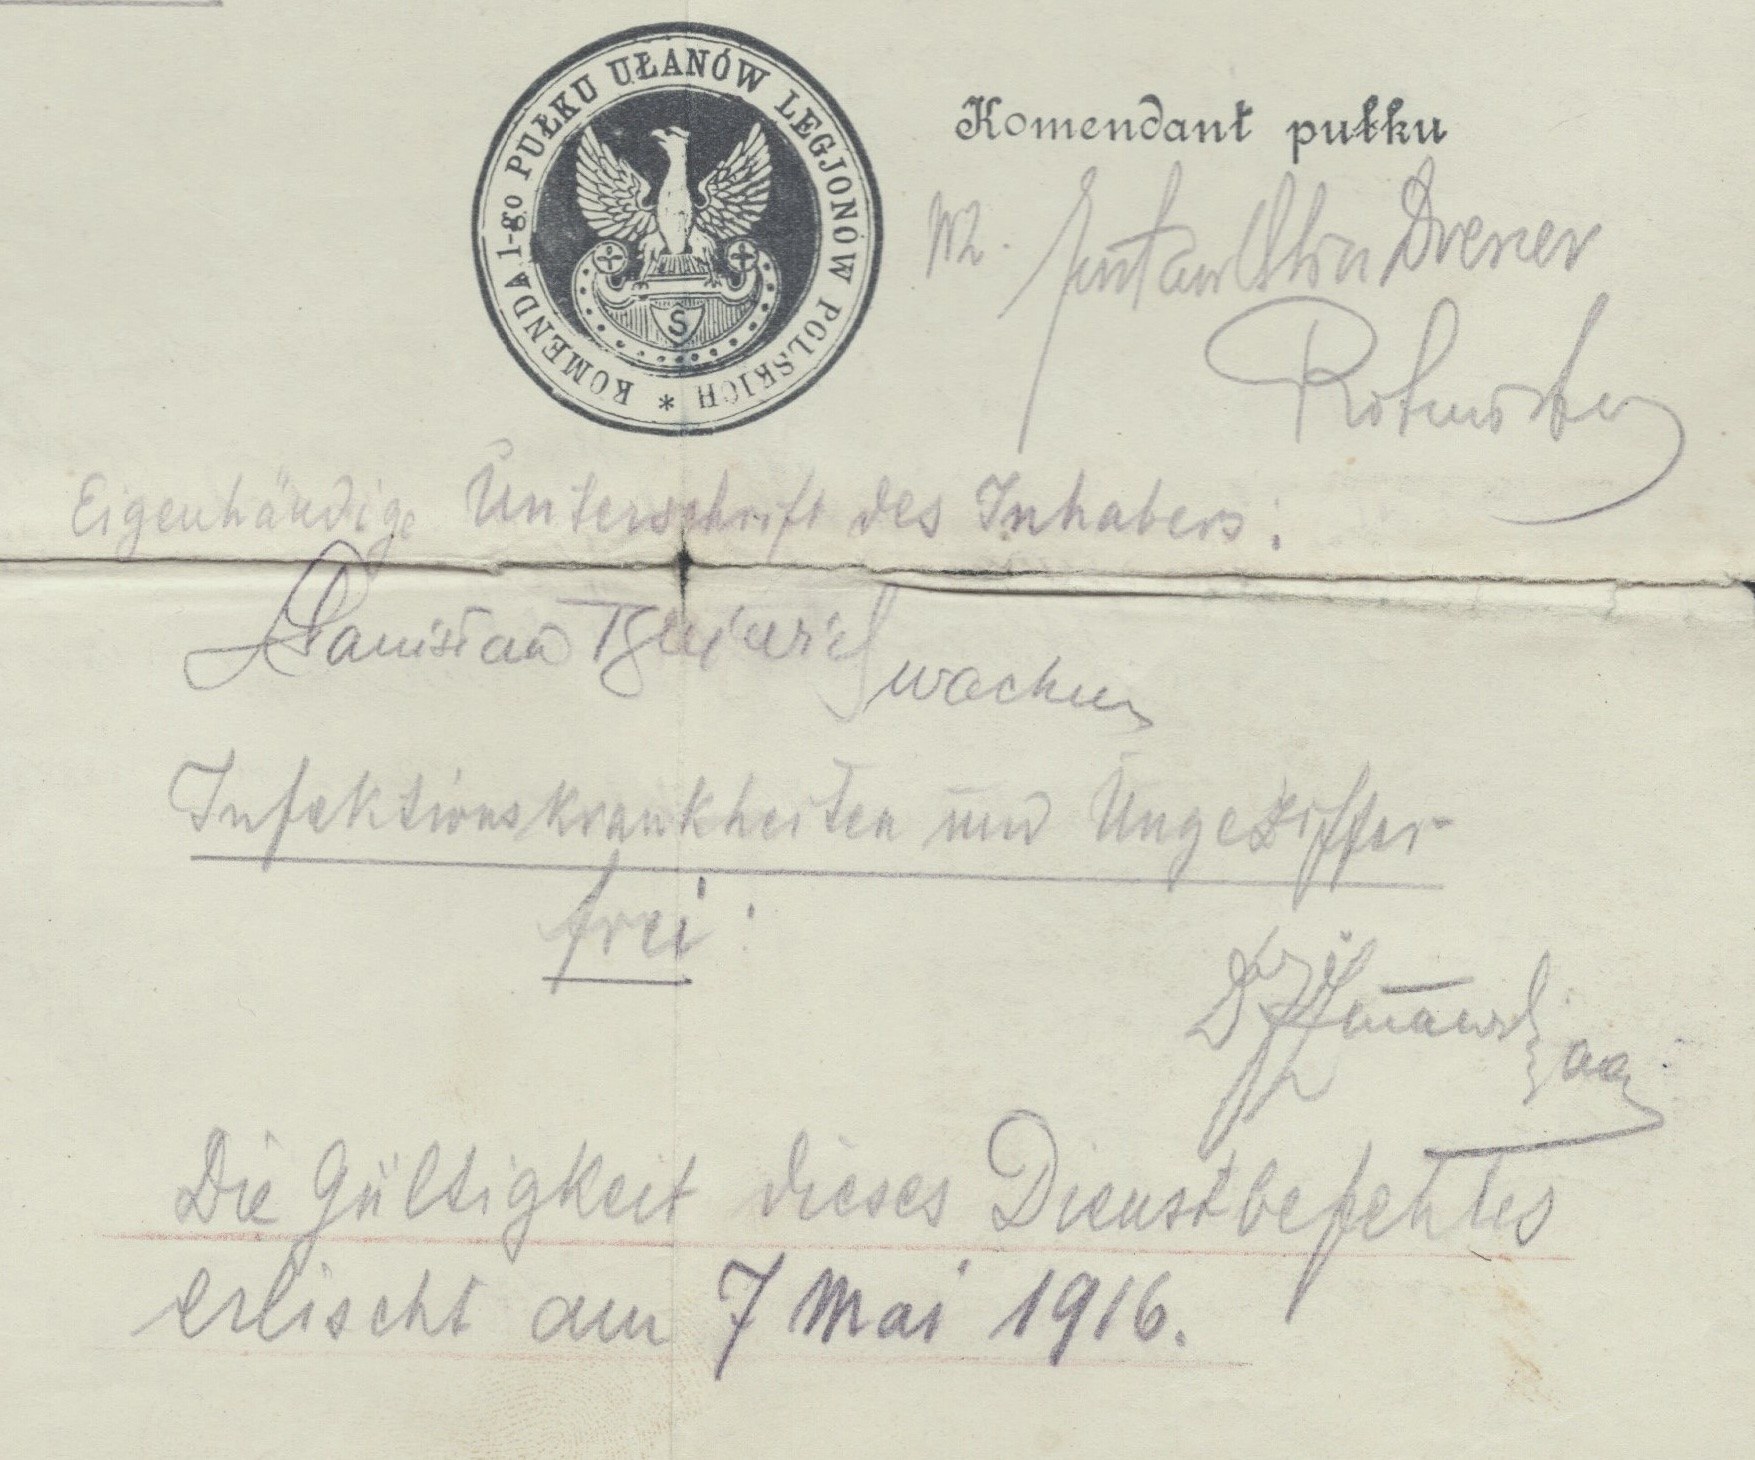 KOMENDA 1-go PUŁKU UŁANÓW LEGJONÓW POLSKICH *
S
Komendant pułku
Wz.
Dreszer
Rotmistrz
Eigenhändige Unterschrift des Inhabers:
Stanisław
wachm
Infektionskrankheiten und Ungeziffer
frei:
Dr
Die Gültigkeit dieses Dienstbefehles
erlischt am 7 Mai 1916.